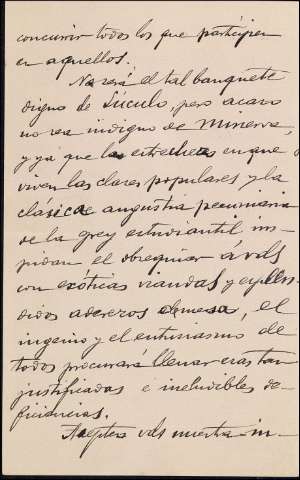 concurrir todos los que participen
en aquellos.
No será el tal banquete
digno de Lúculo, pero acaso
no sea indigno de Minerva,
y ya que las estrecheces en que
viven las clases populares y la
clásica angustia pecuniaria
de la grey estudiantil im-
pidan el obsequiar á vds
con exóticas viandas y esplen-
didos aderezos de mesa, el
ingenio y el entusiasmo de
todos procurará llenar esas tan
justificadas e ineludibles de-
ficiencias.
Acepten vds nuestra in-